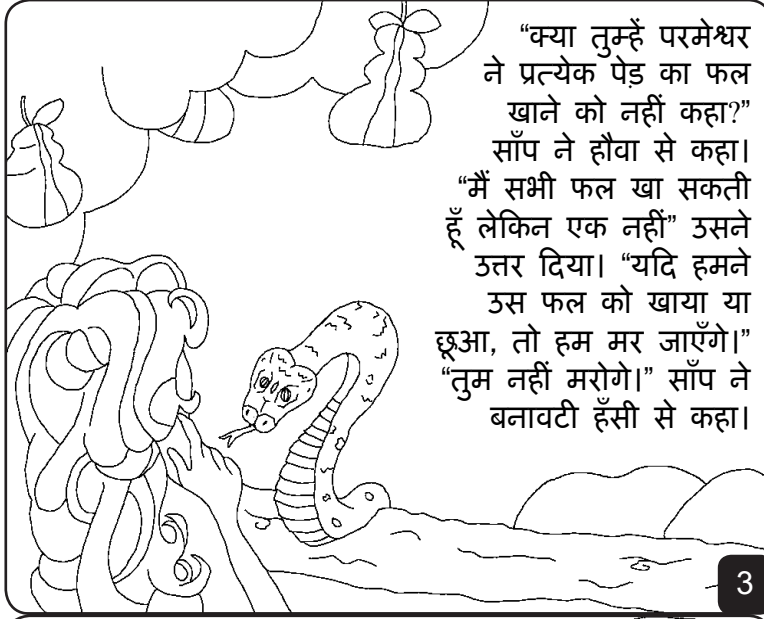 “क्या तुम्हें परमेश्वर
ने प्रत्येक पेड़ का फल
खाने को नहीं कहा?”
साँप ने हौवा से कहा।
“मैं सभी फल खा सकती
हूँ लेकिन एक नहीं” उसने
उत्तर दिया। “यदि हमने
उस फल को खाया या
छूआ, तो हम मर जाएँगे।”
“तुम नहीं मरोगे।” साँप ने
बनावटी हँसी से कहा।
3